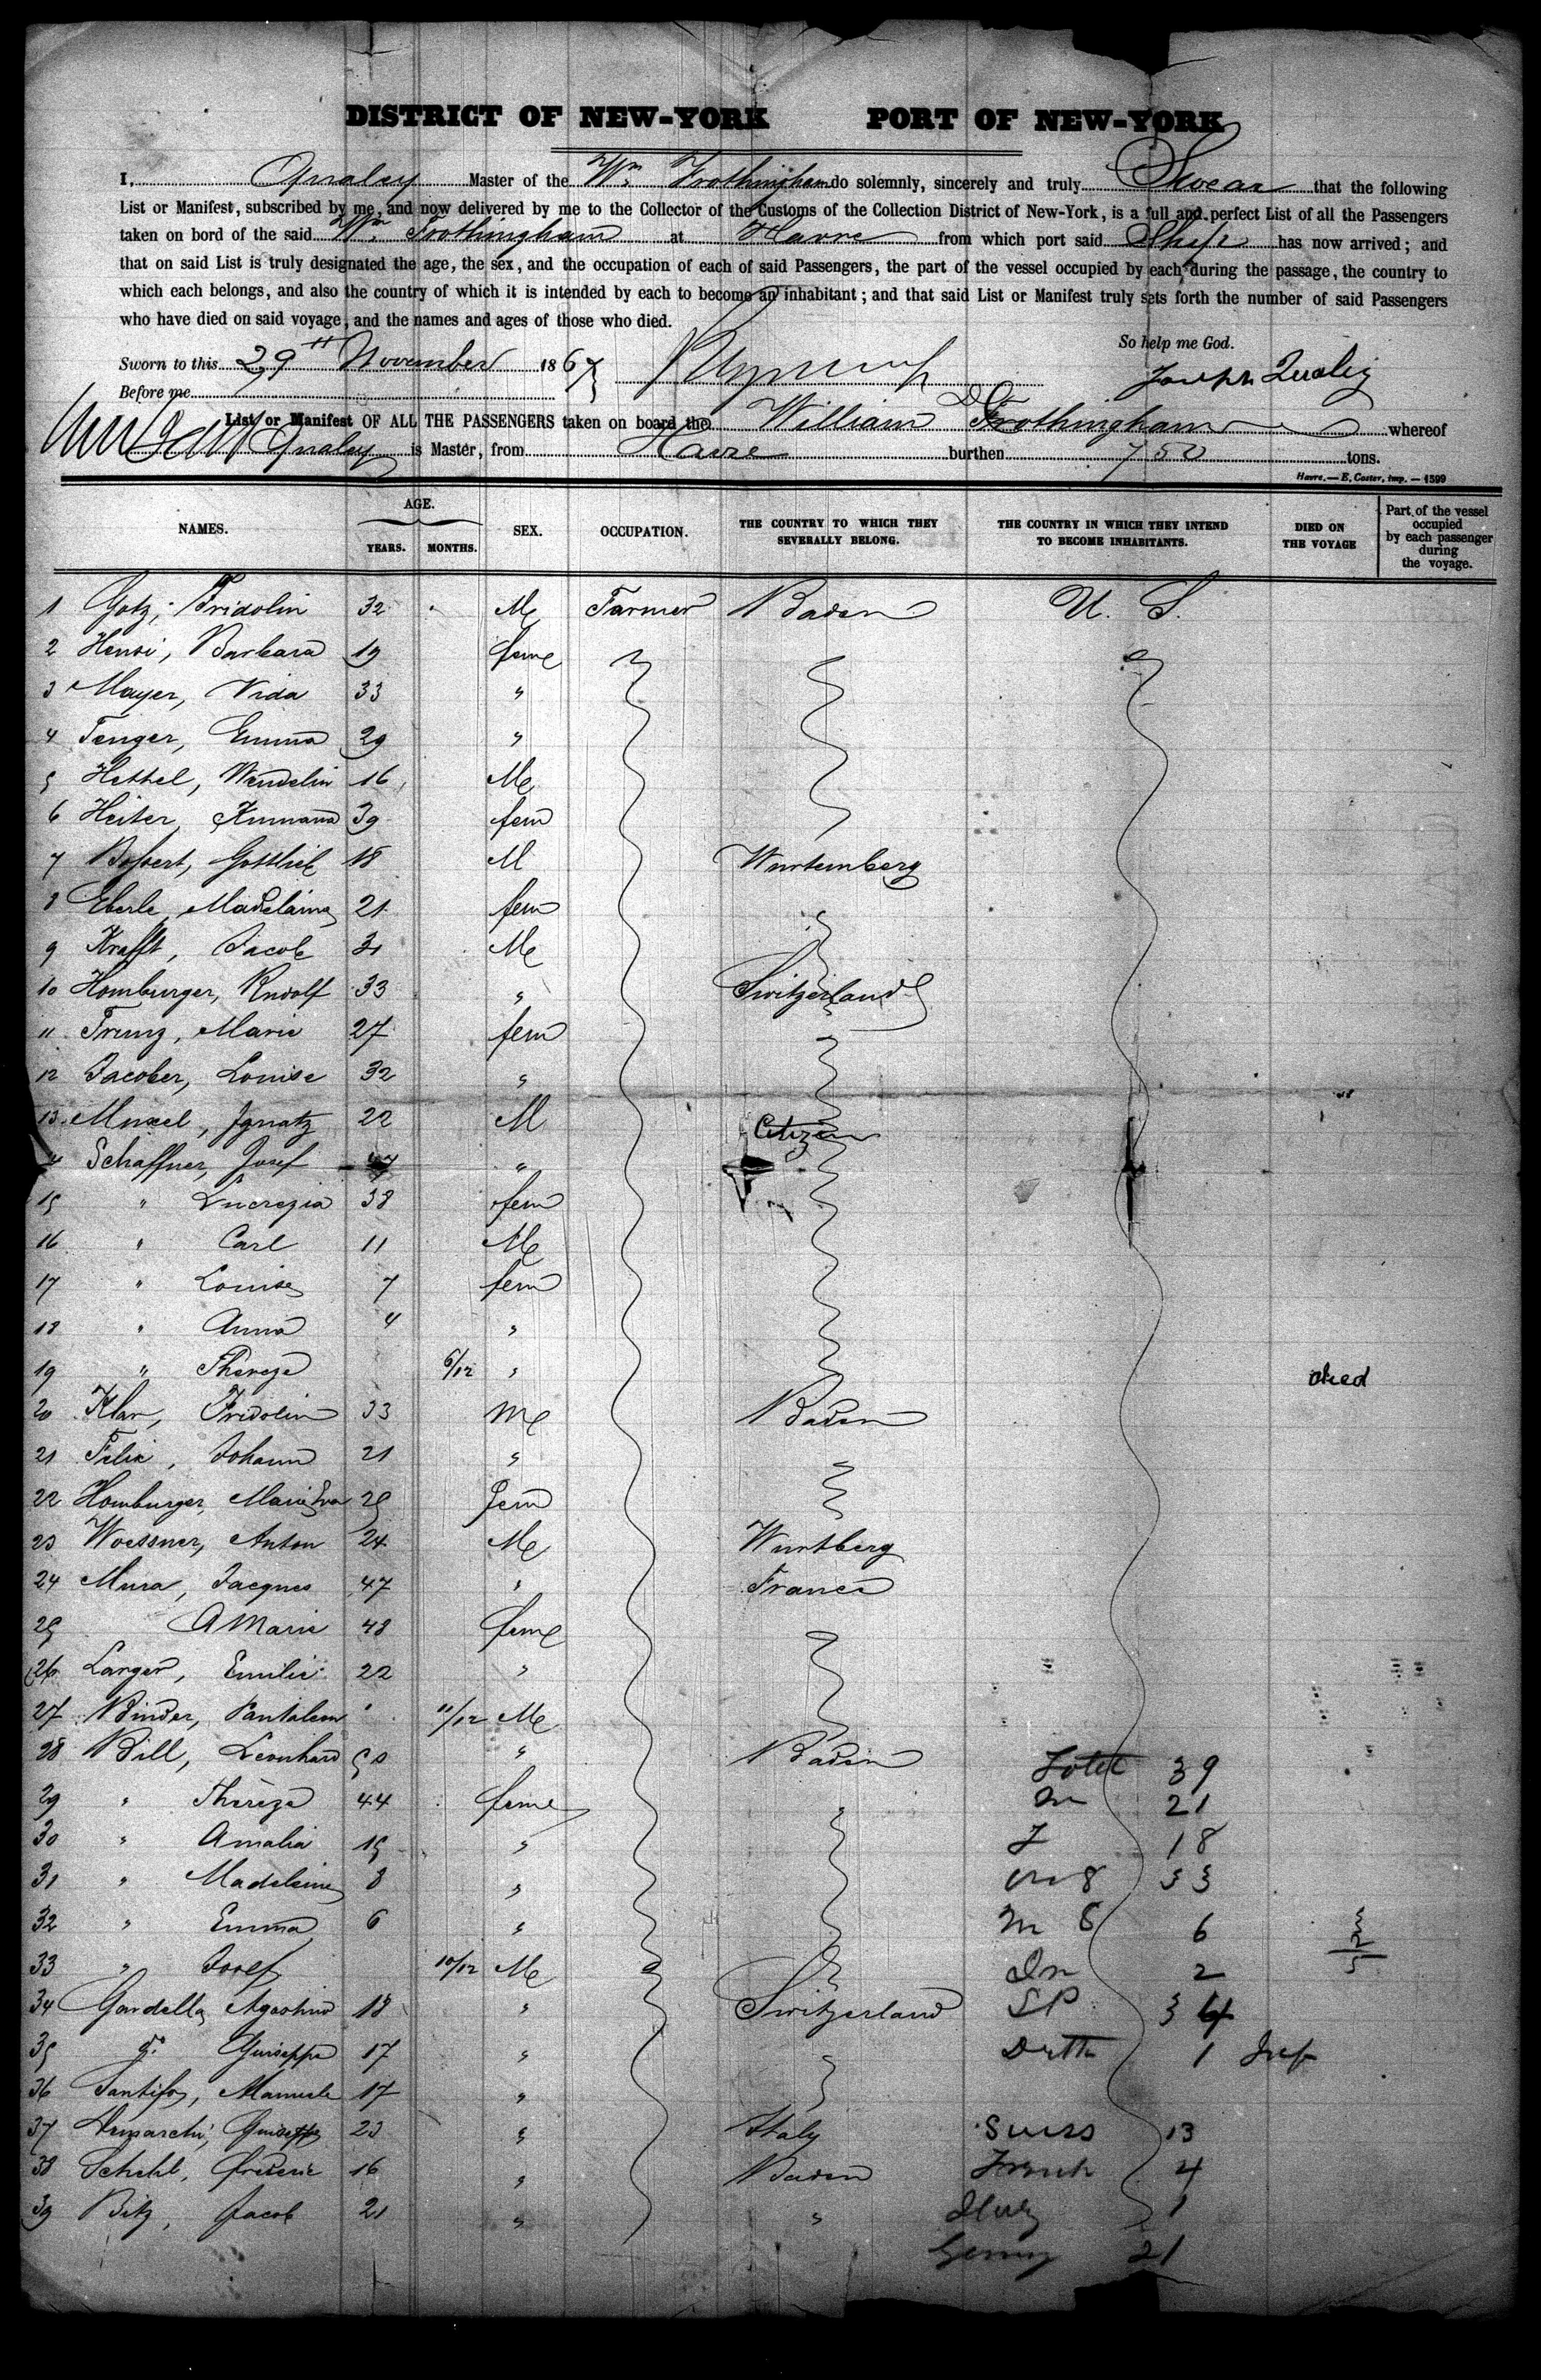 DISTRICT OF NEW-YORK PORT OF NEW-YORK
I, Qualey Master of the Wm. Frothingham do solemnly, sincerely and truly Swear that the following
List or Manifest, subscribed by me, and now delivered by me to the Collector of the Customs of the Collection District of New-York, is a full and perfect List of all the Passengers
taken on bord of the said Wm. Frothingham at Havre from which port said Ship has now arrived; and
that on said List is truly designated the age, the sex, and the occupation of each of said Passengers, the part of the vessel occupied by each during the passage, the country to
which each belongs, and also the country of which it is intended by each to become an inhabitant; and that said List or Manifest truly sets forth the number of said Passengers
who have died on said voyage, and the names and ages of those who died.
So help me God.
Sworn to this 29th November 1867
Joseph Qualey
Before me
List or Manifest OF ALL THE PASSENGERS taken on board the William Frothingham whereof
Qualey is Master, from Havre burthen 750 tons.
Havre.— E. Coster, imp. — 1599
NAMES. AGE. YEARS. MONTHS. SEX. OCCUPATION. THE COUNTRY TO WHICH THEY SEVERALLY BELONG. THE COUNTRY IN WHICH THEY INTEND TO BECOME INHABITANTS. DIED ON THE VOYAGE Part of the vessel occupied by each passenger during the voyage.
1 Gotz, Fridolin 32 Me Farmer Baden U. S.
2 Hensi, Barbara 19 feme
3 Mayer, Vida 33 "
4 Fenger, Emma 29 "
5 Hettel, Wendelin 16 Me
6 Heiter, 39 fem
7 Bossert, Gottlieb 18 M Wurtemberg
8 Eberle, Madelaine 21 fem
9 Krafft, Jacob 31 Me
10 Homburger, Rudolf 33 " Switzerland
11 Trunz, Marie 27 fem
12 Jacober, Louise 32 "
13 Muxel, Ignatz 22 M Citizen
14 Schaffner, Josef 47 "
15 " Lucrezia 38 fem
16 " Carl 11 Me
17 " Louise 7 fem
18 " Anna 4 "
19 " Thereze 6/12 " died
20 Klar, Fridolin 33 Me Baden
21 Felix, Johann 21 "
22 Homburger, Marie Eva 25 fem
23 Woessner, Anton 24 Me Wurtberg
24 Mura, Jacques 47 " France
25 A Marie 48 feme
26 Larger, Emilie 22 "
27 Binder, Pantaleon " 11/12 Me
28 Bill, Leonhard 50 " Baden Total 39
29 " Thérèze 44 feme M 21
30 " Amalia 15 " F 18
31 " Madeleine 8 " 33
32 " Emma 6 " 6
33 " Josef 10/12 Me 2
34 Gardella, Agostino 18 " Switzerland
35 do. Guiseppe 17 " Death 1 Inf
36 Mamuele 17 "
37 Demarchi, Guiseppe 23 " Italy Suiss 13
38 Schehl, Frederic 16 " Baden French 4
39 Bitz, Jacob 21 " " Italy 1
Germy 21